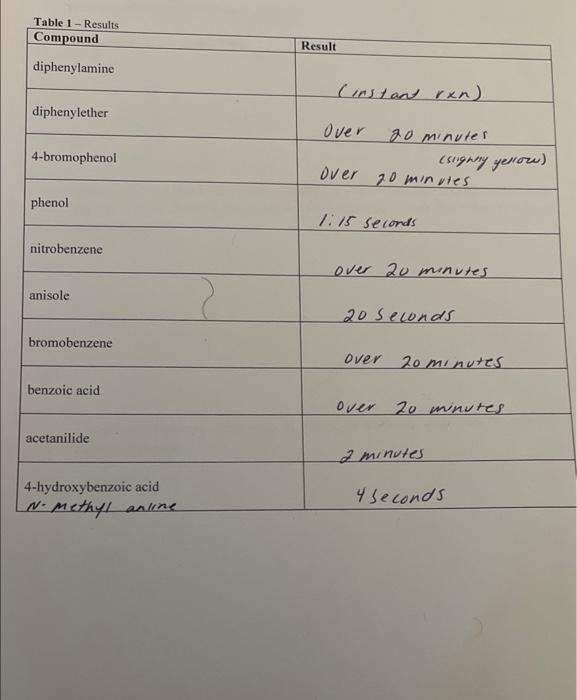 Table 1 – Results
Compound
Result
diphenylamine
(instant rxn)
diphenylether
Over 20 minutes
4-bromophenol
(slighly yellow)
Over 20 minutes
phenol
1:15 seconds
nitrobenzene
over 20 minutes
anisole
20 seconds
bromobenzene
over 20 minutes
benzoic acid
over 20 minutes
acetanilide
2 minutes
4-hydroxybenzoic acid
4 seconds
N-methyl anline